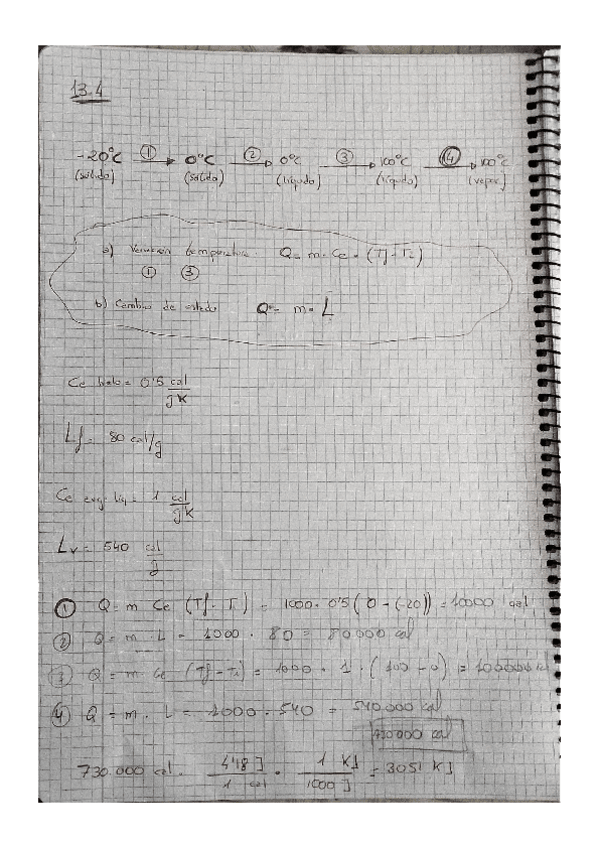 13.4
-20°C ① → 0°C ② → 0°C ③ → 100°C ④ → 100°C
(sólido) (sólido) (líquido) (líquido) (vapor)
a) Variación temperatura. Q = m · Ce · (Tf - Ti)
① ③
b) Cambio de estado Q = m · L
Ce hielo = 0'5 cal/gK
Lf = 80 cal/g
Ce agua líq = 1 cal/gK
Lv = 540 cal/g
① Q = m Ce (Tf - Ti) = 1000 · 0'5 (0 - (-20)) = 10000 cal
② Q = m · L = 1000 · 80 = 80000 cal
③ Q = m Ce (Tf - Ti) = 1000 · 1 · (100 - 0) = 100000
④ Q = m · L = 1000 · 540 = 540.000 cal
730000 cal
730.000 cal · 4'18 J / 1 cal · 1 KJ / 1000 J = 3051 KJ